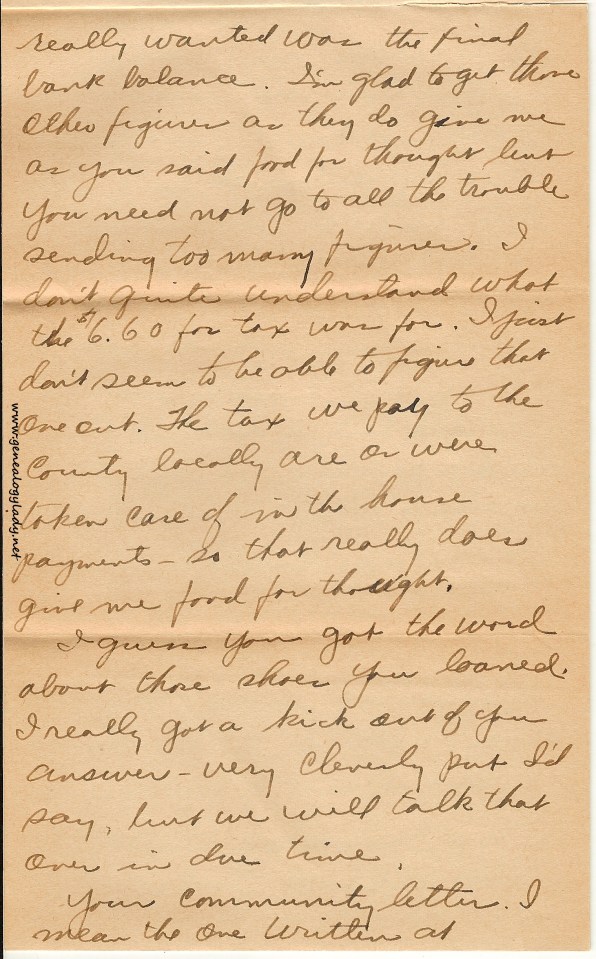 really wanted was the final
bank balance. I'm glad to get those
other figures as they do give me
as you said food for thought but
you need not go to all the trouble
sending too many figures. I
don't quite understand what
the $6.60 for tax was for. I just
don't seem to be able to figure that
one out. The tax we pay to the
County locally are or were
taken care of in the house
payments - so that really does
give me food for thought.
I guess you got the word
about those shoes you loaned.
I really got a kick out of you
answer - very cleverly put I'd
say, but we will talk that
over in due time.
Your community letter. I
mean the one written at
www.genealogylady.net